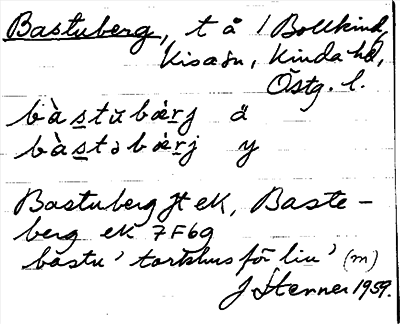 Bastuberg, t å / Bollkind,
Kisa sn, Kinda hd,
Östg. l.
bàstŭbæ̀rj ä
bàstəbæ̀rj y
Bastuberg Jt ek, Baste-
berg ek 7F6g
bastu 'torkhus för lin' (m)
J Stenner 1959.